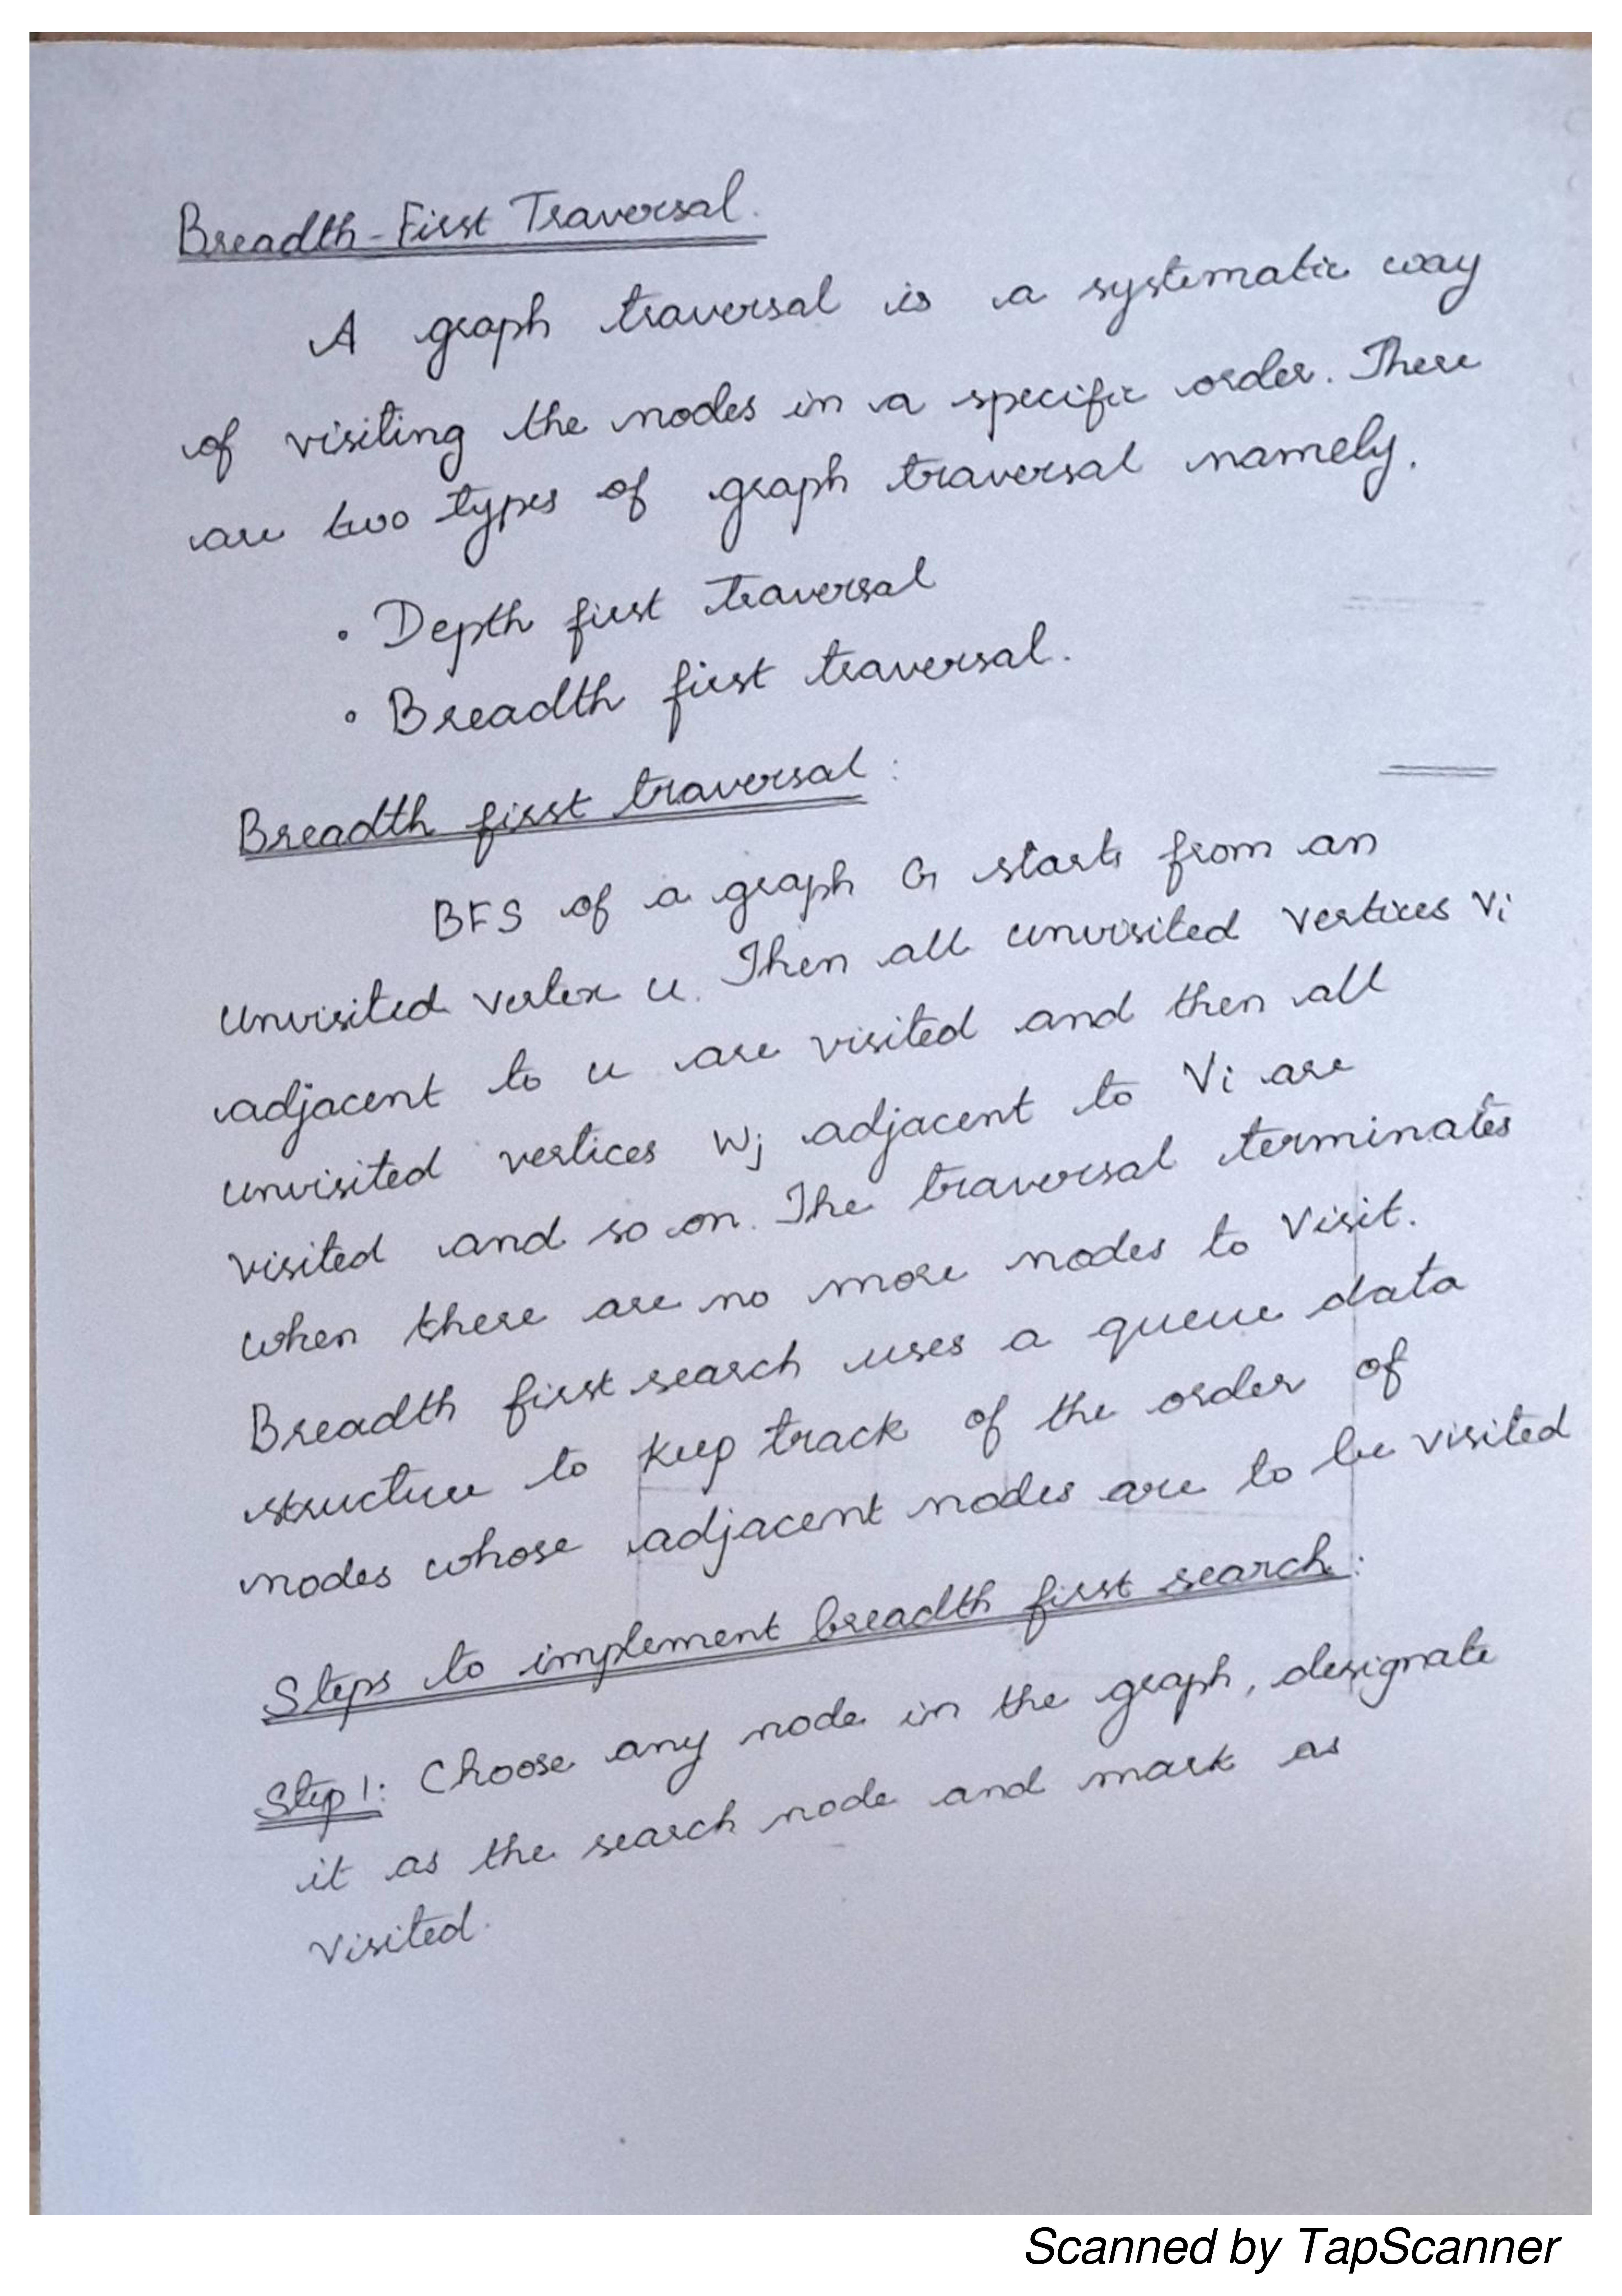 Breadth-First Traversal.
A graph traversal is a systematic way
of visiting the nodes in a specific order. There
are two types of graph traversal namely.
• Depth first traversal
• Breadth first traversal.
Breadth first traversal:
BFS of a graph G starts from an
unvisited vertex u. Then all unvisited vertices Vi
adjacent to u are visited and then all
unvisited vertices Wj adjacent to Vi are
visited and so on. The traversal terminates
when there are no more nodes to visit.
Breadth first search uses a queue data
structure to keep track of the order of
nodes whose adjacent nodes are to be visited
Steps to implement breadth first search:
Step 1: Choose any node in the graph, designate
it as the search node and mark as
visited.
Scanned by TapScanner